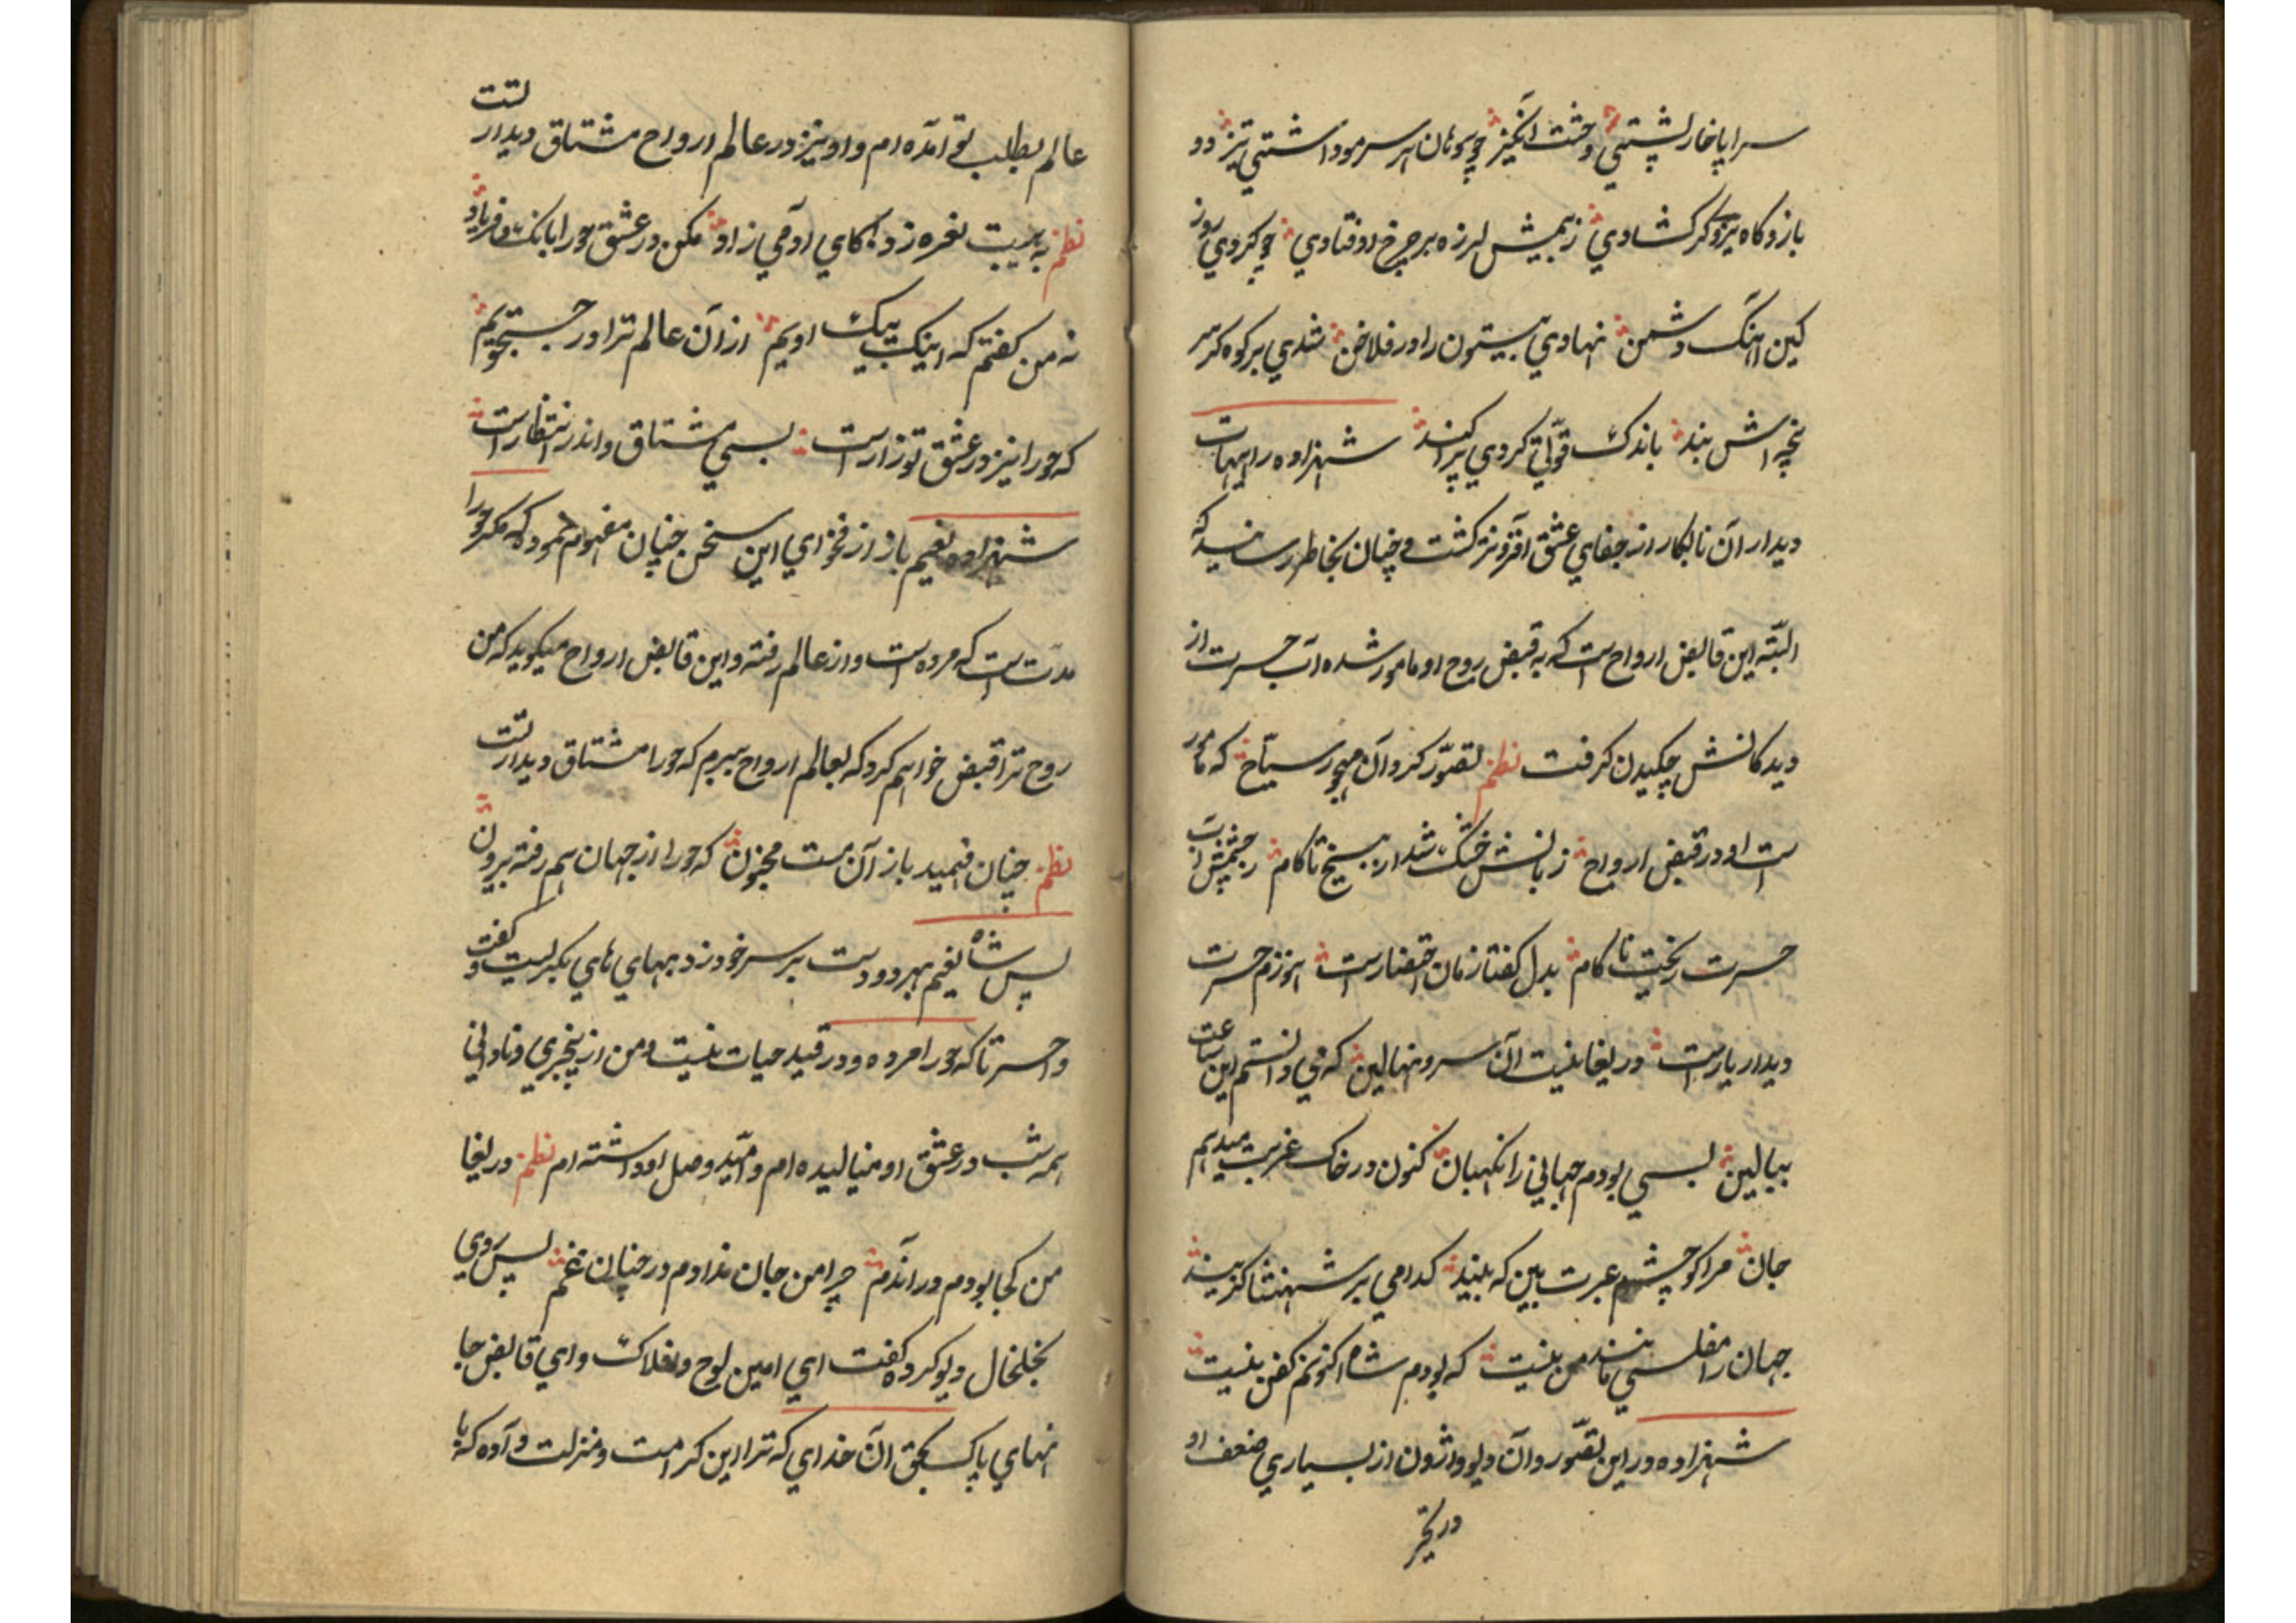 سراپا خار پشتی وحشت انگیز چو پوهان هر سر مو داشتی تیز دو
بازو کاه نیرو کر کشادی ز بیمش لرزه بر چرخ اوفتادی چو کردی روز
کین اهنک دشمن نهادی بیستون را در فلاخن شدی بر کوه کر سر
پنچه اش بند باندک قوّتی کردی پراکند شهزاده را از هیهات
دیدار آن نابکار از جفای عشق افزونتر کشت و چنان بخاطر رسانید که
البتّه این قابض ارواح است که به قبض روح او مامور شده آب حسرت از
دیدکانش چکیدن کرفت نظم تصوّر کرد آن مهجور سیّاح که مامور
است او در قبض ارواح زبانش خشک شد از بیخ تا کام ز چشمش آب
حسرت ریخت ناکام بدل کفتا زمان احتضار است هنوزم حسرت
دیدار یار است دریغا نیست آن سرو نهالین که می دانستم این ساعت
ببالین بسی بودم جهانی را نکهبان کنون در خاک غربت میدهم
جان مرا کو چشم عبرت بین که بیند کدامی بر شهنشا کزیند
جهان را مفلسی مانند من نیست که بودم شاه اکنونم کفن نیست
شهزاده در این تصوّر و آن دیو واژون از بسیاری ضعف او
در تحیّر
عالم بطلب تو آمده ام و او نیز در عالم ارواح مشتاق دیدار تست
نظم به هیبت نعره زد کای آدمی زاد مکن در عشق حورا بانک و فریاد
نه من کفتم که اینک پیک اویم از آن عالم ترا در جستجویم
که حورا نیز در عشق تو زار است بسی مشتاق و اندر انتظار است
شهزاده نعیم باز از فحوای این سخن چنان مفهوم نمود که مکر حورا
مدّت است که مرده است و از عالم رفته و این قابض ارواح میکوید که من
روح ترا قبض خواهم کرد که بعالم ارواح ببرم که حورا مشتاق دیدار تست
نظم چنان فهمید باز آن مست محزون که حورا از جهان هم رفته بیرون
پس شاه نعیم بهر دو دست بر سر خود زد بهای های بکریست و کفت
واحسرتا که حورا مرده و در قید حیات نیست و من از بیخبری و نادانی
همه شب در عشق او مینالیده ام و امّید وصل او داشته ام نظم دریغا
من کجا بودم در آندم چرا من جان ندادم در چنان غم پس روی
بخلخال دیو کرد و کفت ای امین لوح و افلاک و ای قابض جا
نهای پاک بحق آن خدای که ترا این کرامت و منزلت داده که با